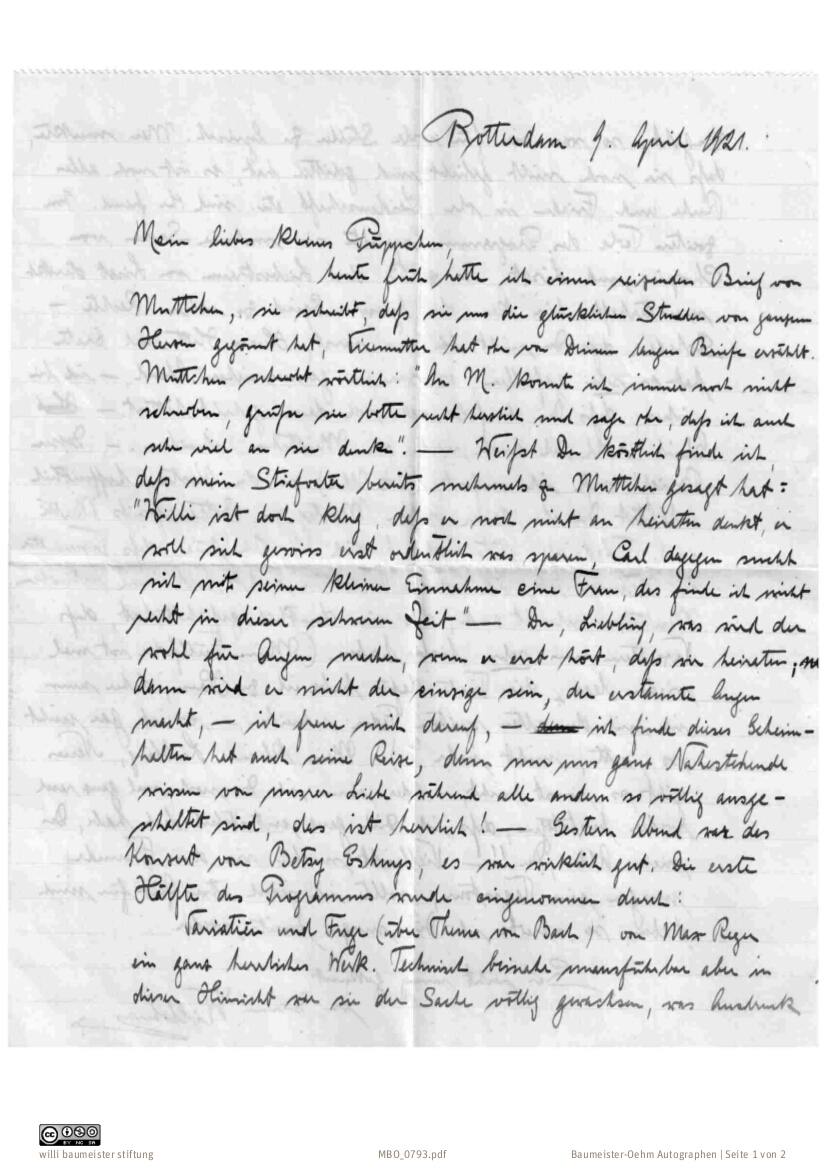 Rotterdam 9. April 1921.
Mein liebes kleines Püppchen,
heute früh hatte ich einen reizenden Brief von
Muttchen, sie schreibt, daß sie uns die glücklichen Stunden von ganzem
Herzen gegönnt hat, Eisemutter hat ihr von Deinem langen Briefe erzählt.
Muttchen schreibt wörtlich: "An M. konnte ich immer noch nicht
schreiben, grüße sie bitte recht herzlich und sage ihr, daß ich auch
sehr viel an sie denke". — Weißt Du köstlich finde ich,
daß mein Stiefvater bereits mehrmals zu Muttchen gesagt hat:
"Willi ist doch klug, daß er noch nicht an heiraten denkt, er
will sich gewiss erst ordentlich was sparen, Carl dagegen sucht
sich mit seiner kleinen Einnahme eine Frau, das finde ich nicht
recht in dieser schweren Zeit" — Du, Liebling, was wird der
wohl für Augen machen, wenn er erst hört, daß wir heiraten; na
dann wird er nicht der einzige sein, der erstaunte Augen
macht, — ich freue mich darauf, — ich finde dieses Geheim-
halten hat auch seine Reize, denn nur uns ganz Nahestehende
wissen von unsrer Liebe während alle andern so völlig ausge-
schaltet sind, das ist herrlich! — Gestern Abend war das
Konzert von Betsy, es war wirklich gut. Die erste
Hälfte des Programms wurde eingenommen durch:
Variatiën und Fuge (über Thema von Bach) von Max Reger
ein ganz herrliches Werk. Technisch beinahe unausführbar aber in
dieser Hinsicht war sie der Sache völlig gewachsen, was Ausdruck
CC BY NC SA
willi baumeister stiftung MBO_0793.pdf Baumeister-Oehm Autographen | Seite 1 von 2